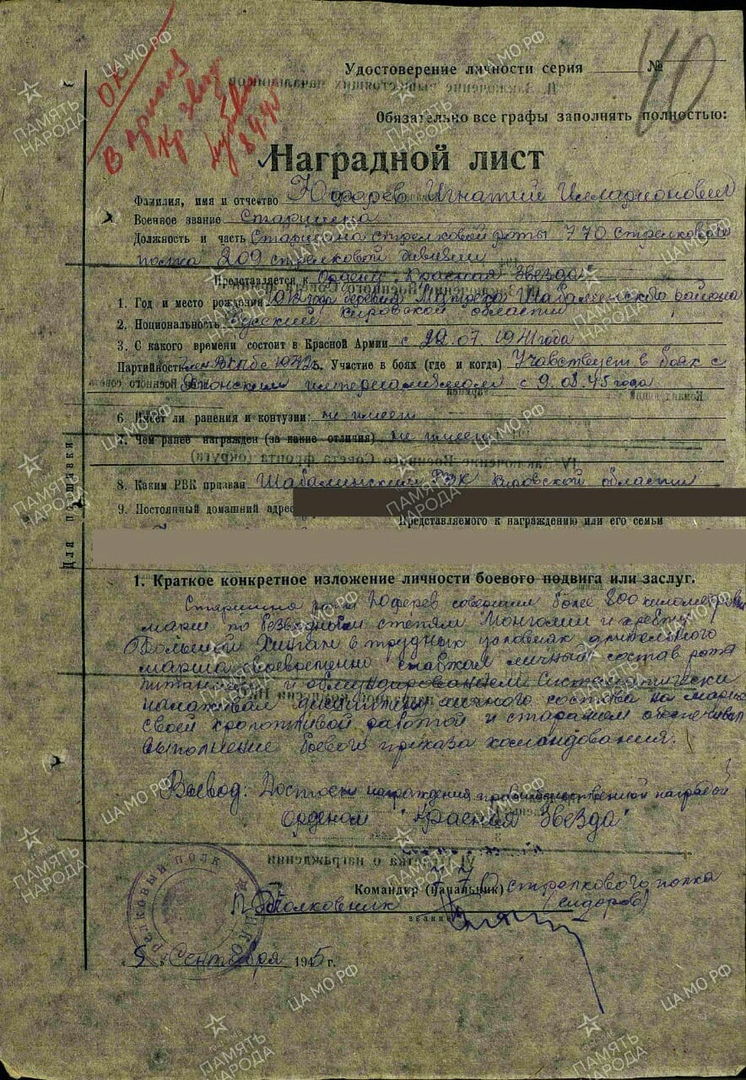 40
Удостоверение личности серия № 
Обязательно все графы заполнять полностью:
ОК
В приказ
Кр. звезд
Наградной лист
Фамилия, имя и отчество Юферев Игнатий Иларионович
Военное звание Старшина
Должность и часть Старшина стрелковой роты 770 стрелкового
полка 209 стрелковой дивизии
Представляется к Ордену "Красная Звезда"
1. Год и место рождения года деревня Шабалинского района
Кировской области
2. Национальность Русский
3. С какого времени состоит в Красной Армии с 29.07.1941 года
Партийность Участие в боях (где и когда) Учавствует в боях с
Японским империализмом с 9.08.45 года
6. Имеет ли ранения и контузии: не имеет
7. Чем ранее награжден (за какие отличия) не имеет
8. Каким РВК призван Шабалинским РВК Кировской области
9. Постоянный домашний адрес
Представляемого к награждению или его семьи
Для подшивки
1. Краткое конкретное изложение личности боевого подвига или заслуг.
Старшина роты Юферев совершил более 800 километров
марш по безводным степям Монголии и хребту
Большой Хинган в трудных условиях длительного
марша своевременно снабжал личный состав роты
питанием и обмундированием. Систематически
налаживал дисциплину личного состава на марше
своей кропотливой работой и старанием обеспечивал
выполнение боевого приказа командования.
Вывод: Достоин награждения правительственной наградой
орденом "Красная Звезда"
Командир (Начальник) 770 стрелкового полка
Подполковник (Сидоров)
звание
5 " Сентября 1945 г.
ПАМЯТЬ НАРОДА
ЦАМО.РФ